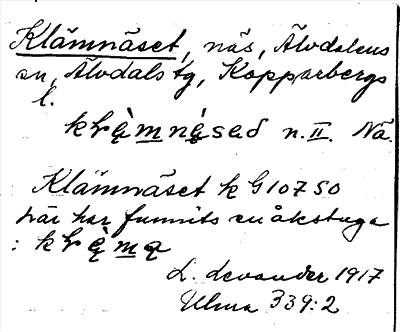 Klämnäset, näs, Älvdalens
sn, Älvdals tg, Kopparbergs
l.
n. II. Nä.
Klämnäset k G 107 SO
här har funnits en åkstuga
:
L. Levander 1917
Ulma 339:2